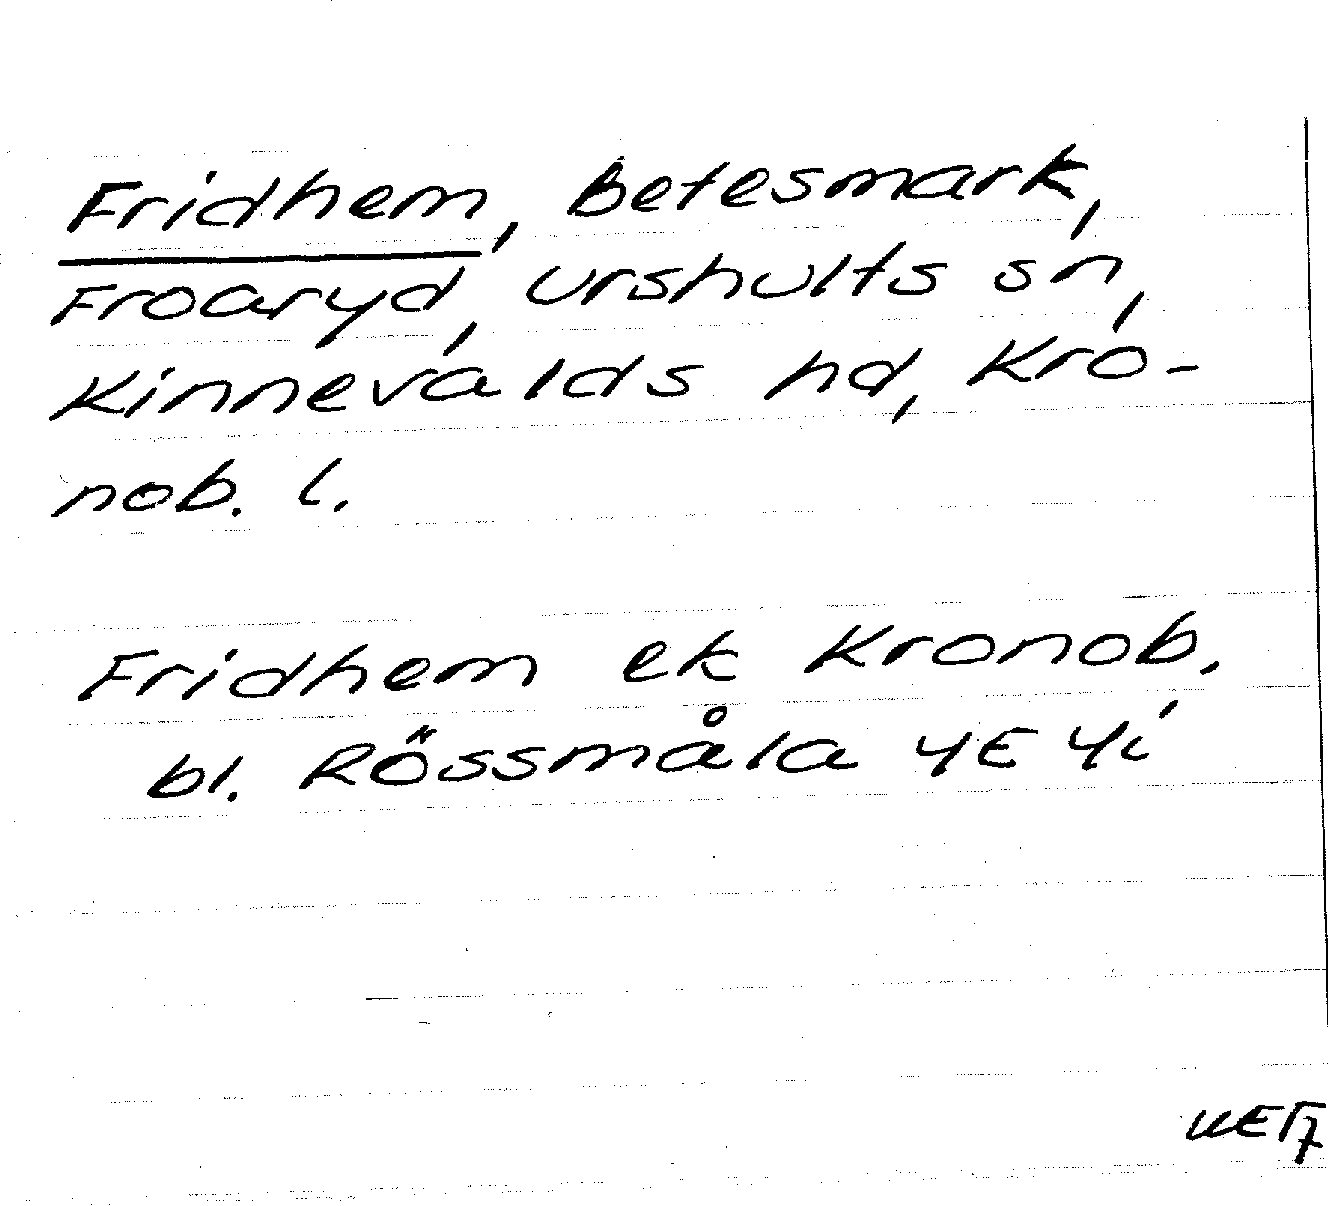 Fridhem, betesmark,
Froaryd, Urshults sn,
Kinnevalds hd, Kro-
nob. l.
Fridhem ek Kronob.
bl. Rössmåla 4E 4i